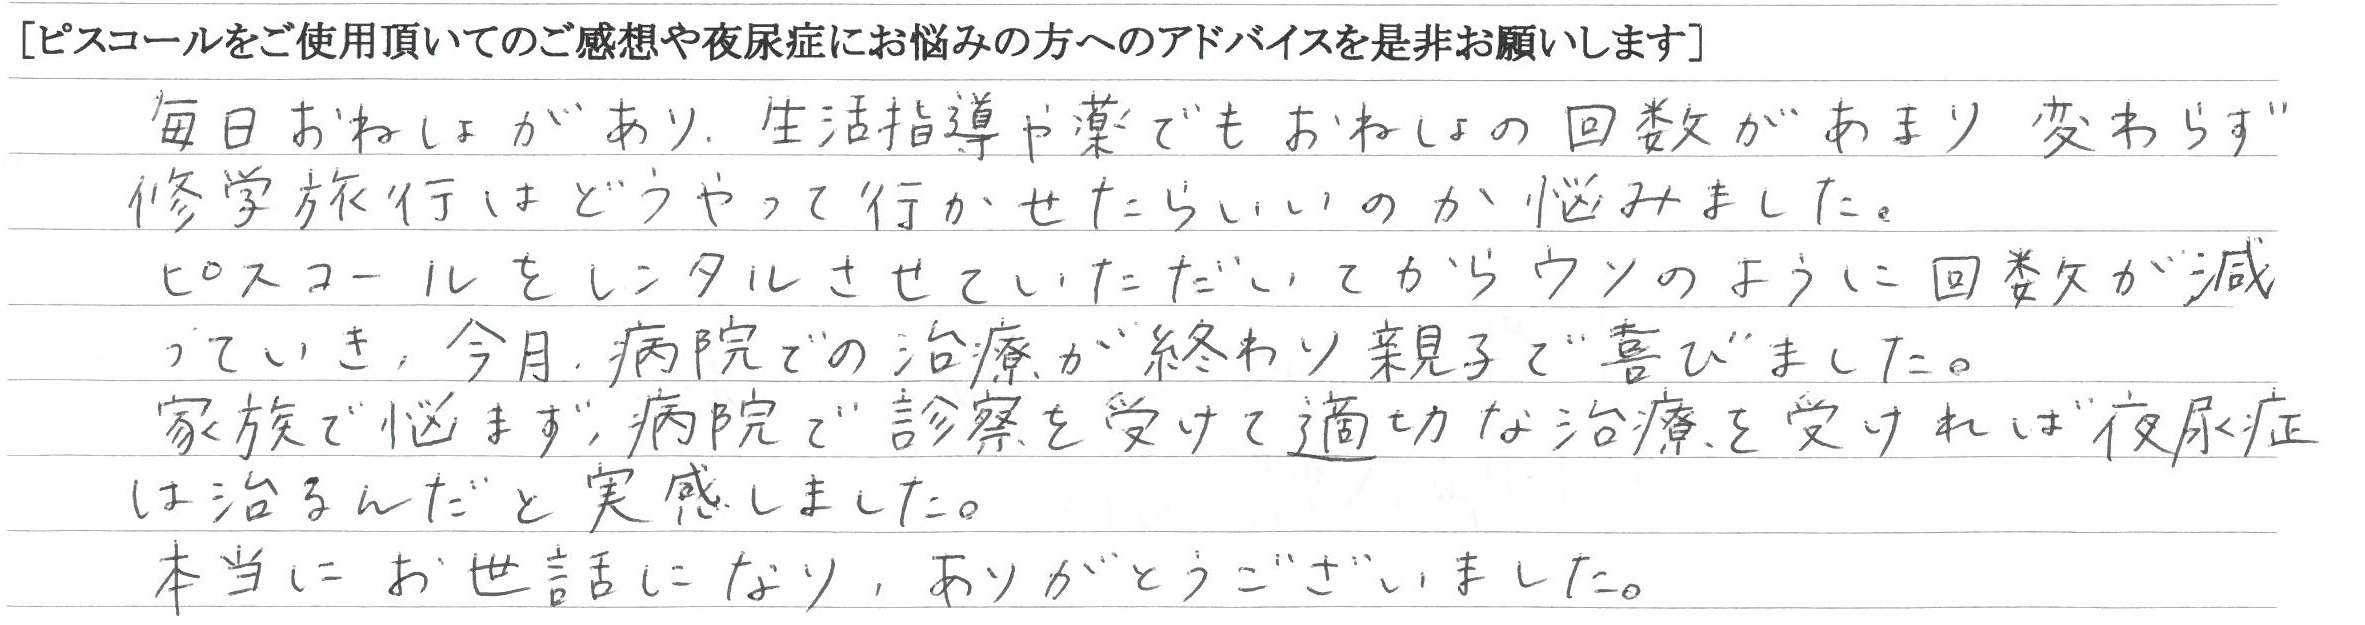 [ピスコールをご使用頂いてのご感想や夜尿症にお悩みの方へのアドバイスを是非お願いします]
毎日おねしょがあり、生活指導や薬でもおねしょの回数があまり変わらず
修学旅行はどうやって行かせたらいいのか悩みました。
ピスコールをレンタルさせていただいてからウソのように回数が減
っていき、今月、病院での治療が終わり親子で喜びました。
家族で悩まず、病院で診察を受けて適切な治療を受ければ夜尿症
は治るんだと実感しました。
本当にお世話になり、ありがとうございました。